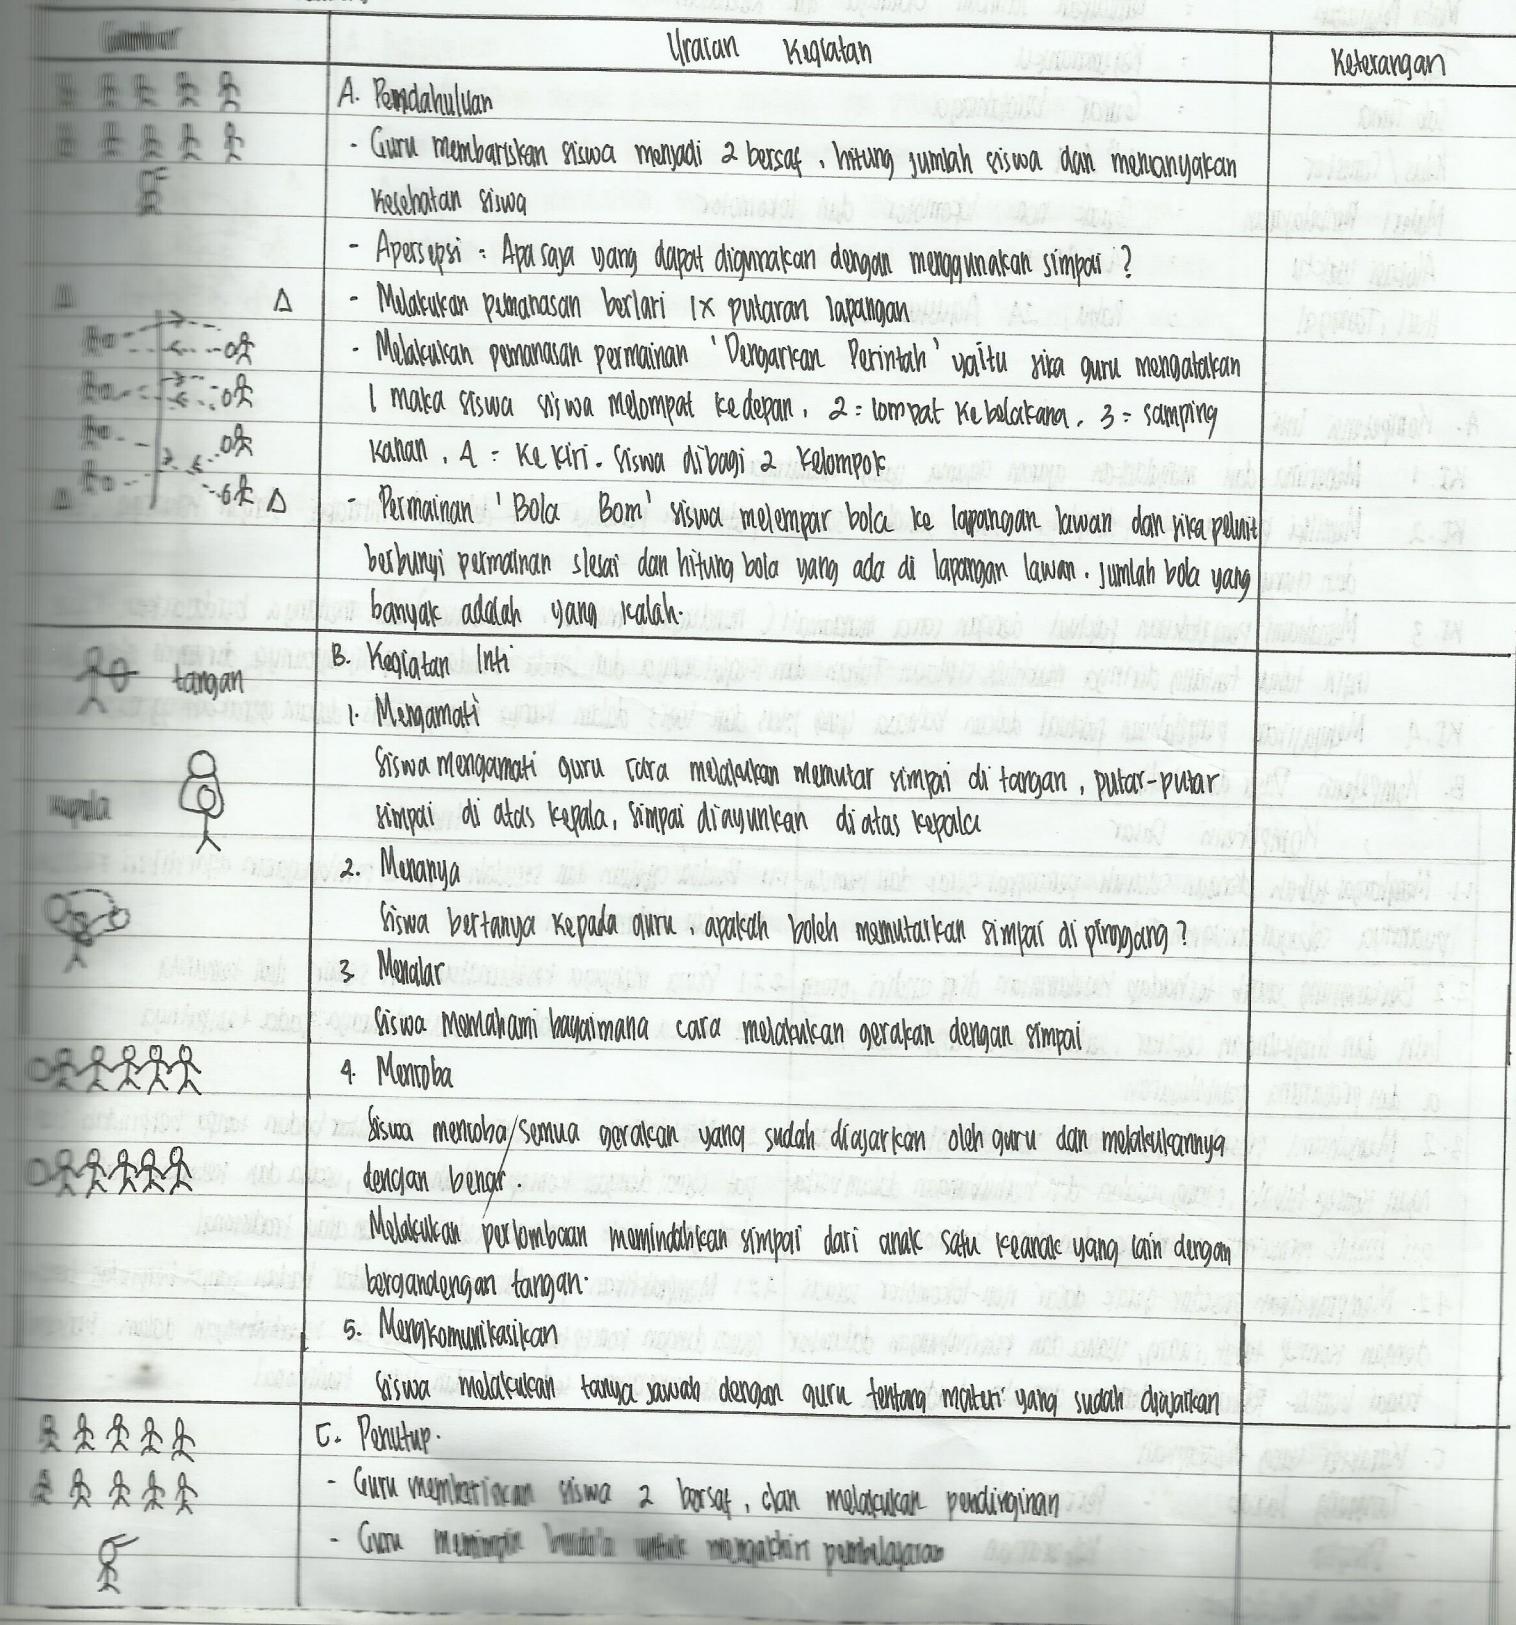 Gambar
Uraian Kegiatan
Keterangan
A. Pendahuluan
- Guru membariskan siswa menjadi 2 bersaf, hitung jumlah siswa dan menanyakan
kesehatan siswa
- Apersepsi : Apa saja yang dapat digunakan dengan menggunakan simpai ?
- Melakukan pemanasan berlari 1x putaran lapangan
- Melakukan pemanasan permainan 'Dengarkan Perintah' yaitu jika guru mengatakan
1 maka siswa siswa melompat kedepan, 2 = lompat kebelakang, 3 = samping
kanan, 4 = ke kiri. siswa dibagi 2 kelompok
- Permainan 'Bola Bom' siswa melempar bola ke lapangan lawan dan jika peluit
berbunyi permainan slesai dan hitung bola yang ada di lapangan lawan. jumlah bola yang
banyak adalah yang kalah.
tangan
B. Kegiatan Inti
1. Mengamati
Siswa mengamati guru cara melakukan memutar simpai di tangan, putar-putar
kepala
simpai di atas kepala, simpai diayunkan diatas kepala
2. Menanya
Siswa bertanya kepada guru, apakah boleh memutarkan simpai di pinggang ?
3. Menalar
Siswa memahami bagaimana cara melakukan gerakan dengan simpai
4. Mencoba
Siswa mencoba/semua gerakan yang sudah diajarkan oleh guru dan melakukannya
dengan benar
Melakukan perlombaan memindahkan simpai dari anak satu keanak yang lain dengan
bergandengan tangan.
5. Mengkomunikasikan
Siswa melakukan tanya jawab dengan guru tentang materi yang sudah diajarkan
C. Penutup.
- Guru membariskan siswa 2 bersaf, dan melakukan pendinginan
- Guru memimpin berdo'a untuk mengakhiri pembelajaran